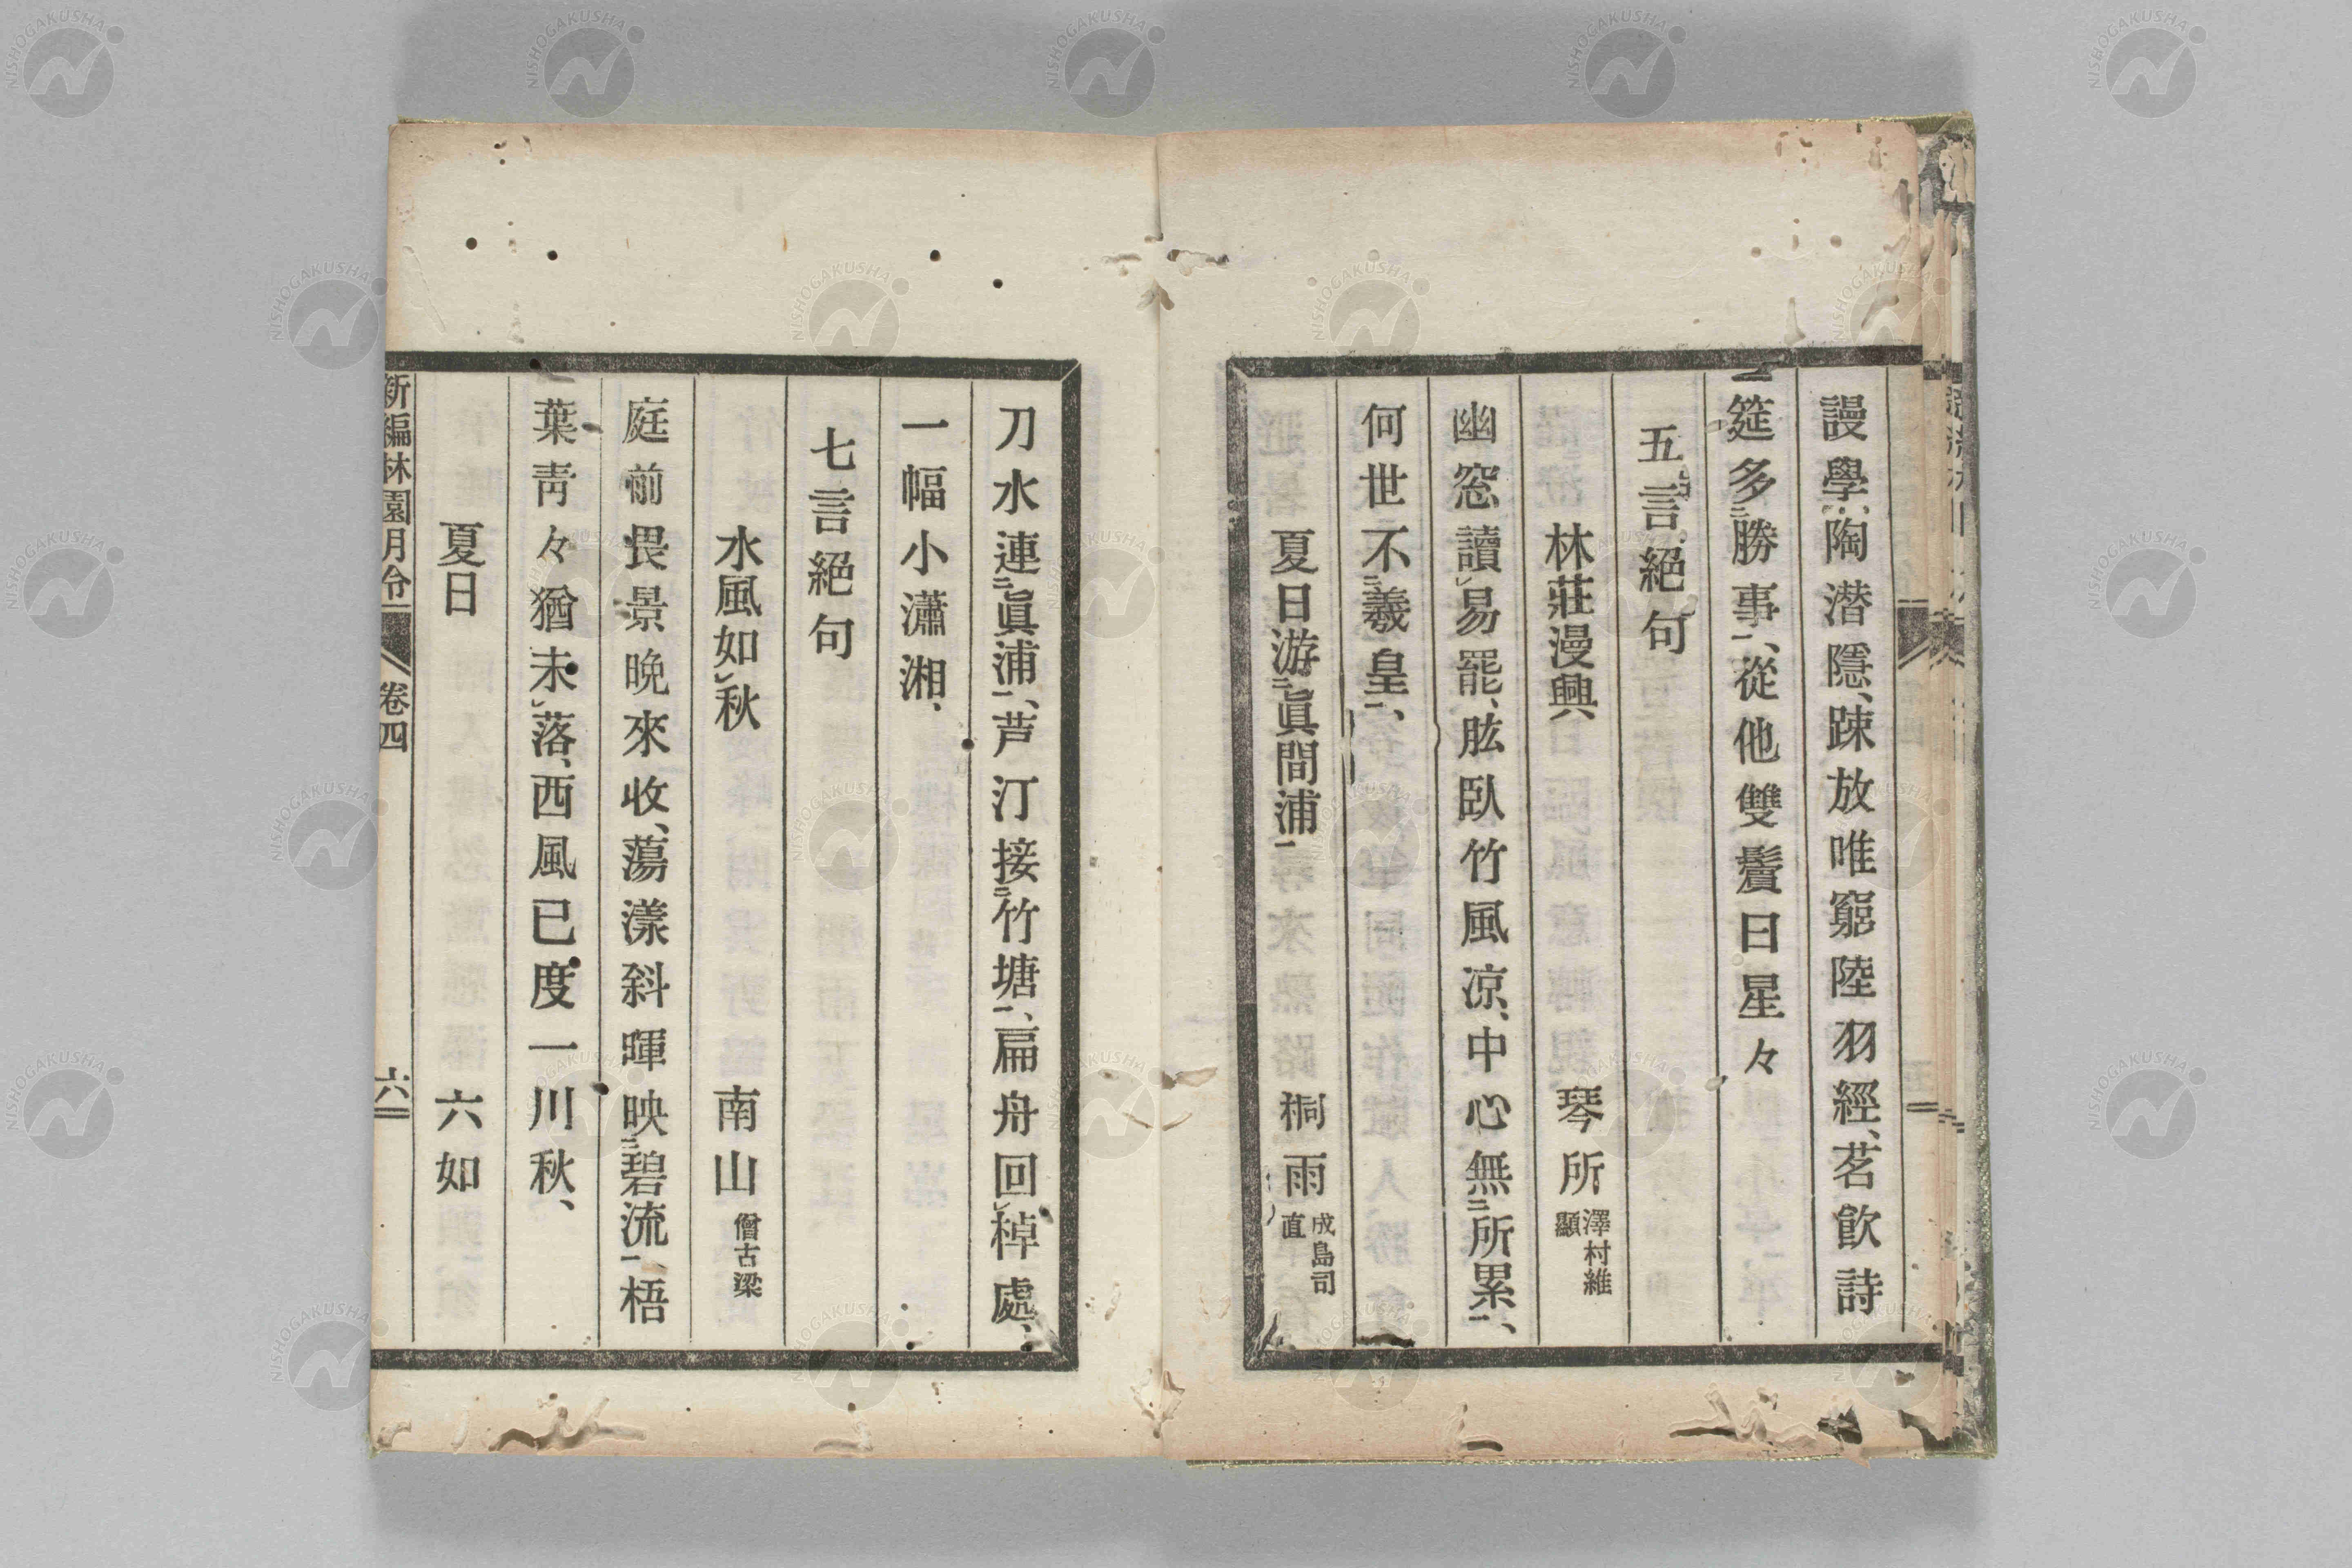 謾學陶潜隱、踈放唯窮陸羽經、茗飮詩
筵多勝事、從他雙鬢日星々
五言絕句
林莊漫興 琴所 澤村維顯
幽窓讀易罷、肱臥竹風凉、中心無所累、
何世不羲皇、
夏日游眞間浦 桐雨 成島司直
刀水連眞浦、芦汀接竹塘、扁舟回棹處、
一幅小瀟湘、
七言絕句
水風如秋 南山 僧古梁
庭前畏景晩來收、蕩漾斜暉映碧流、梧
葉青々猶未落、西風已度一川秋、
夏日 六如
新編林園月令 卷四 六
NISHOGAKUSHA